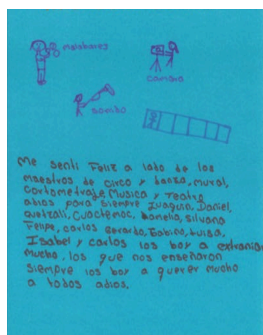 malabares
camara
bombo
Me senti Feliz a lado de los
maestros de circo y danza, mural,
Cortometraje Musica y Teatro
adios para siempre Juaquin, Daniel
Quetzali, Cuactemoc, Pamelia, Silvana
Felipe, carlos Gerardo, Fabino, Luisa,
Isabel y carlos los boy a extraniar
mucho, los que nos enseñaron
Siempre los boy a querer mucho
a todos adios.